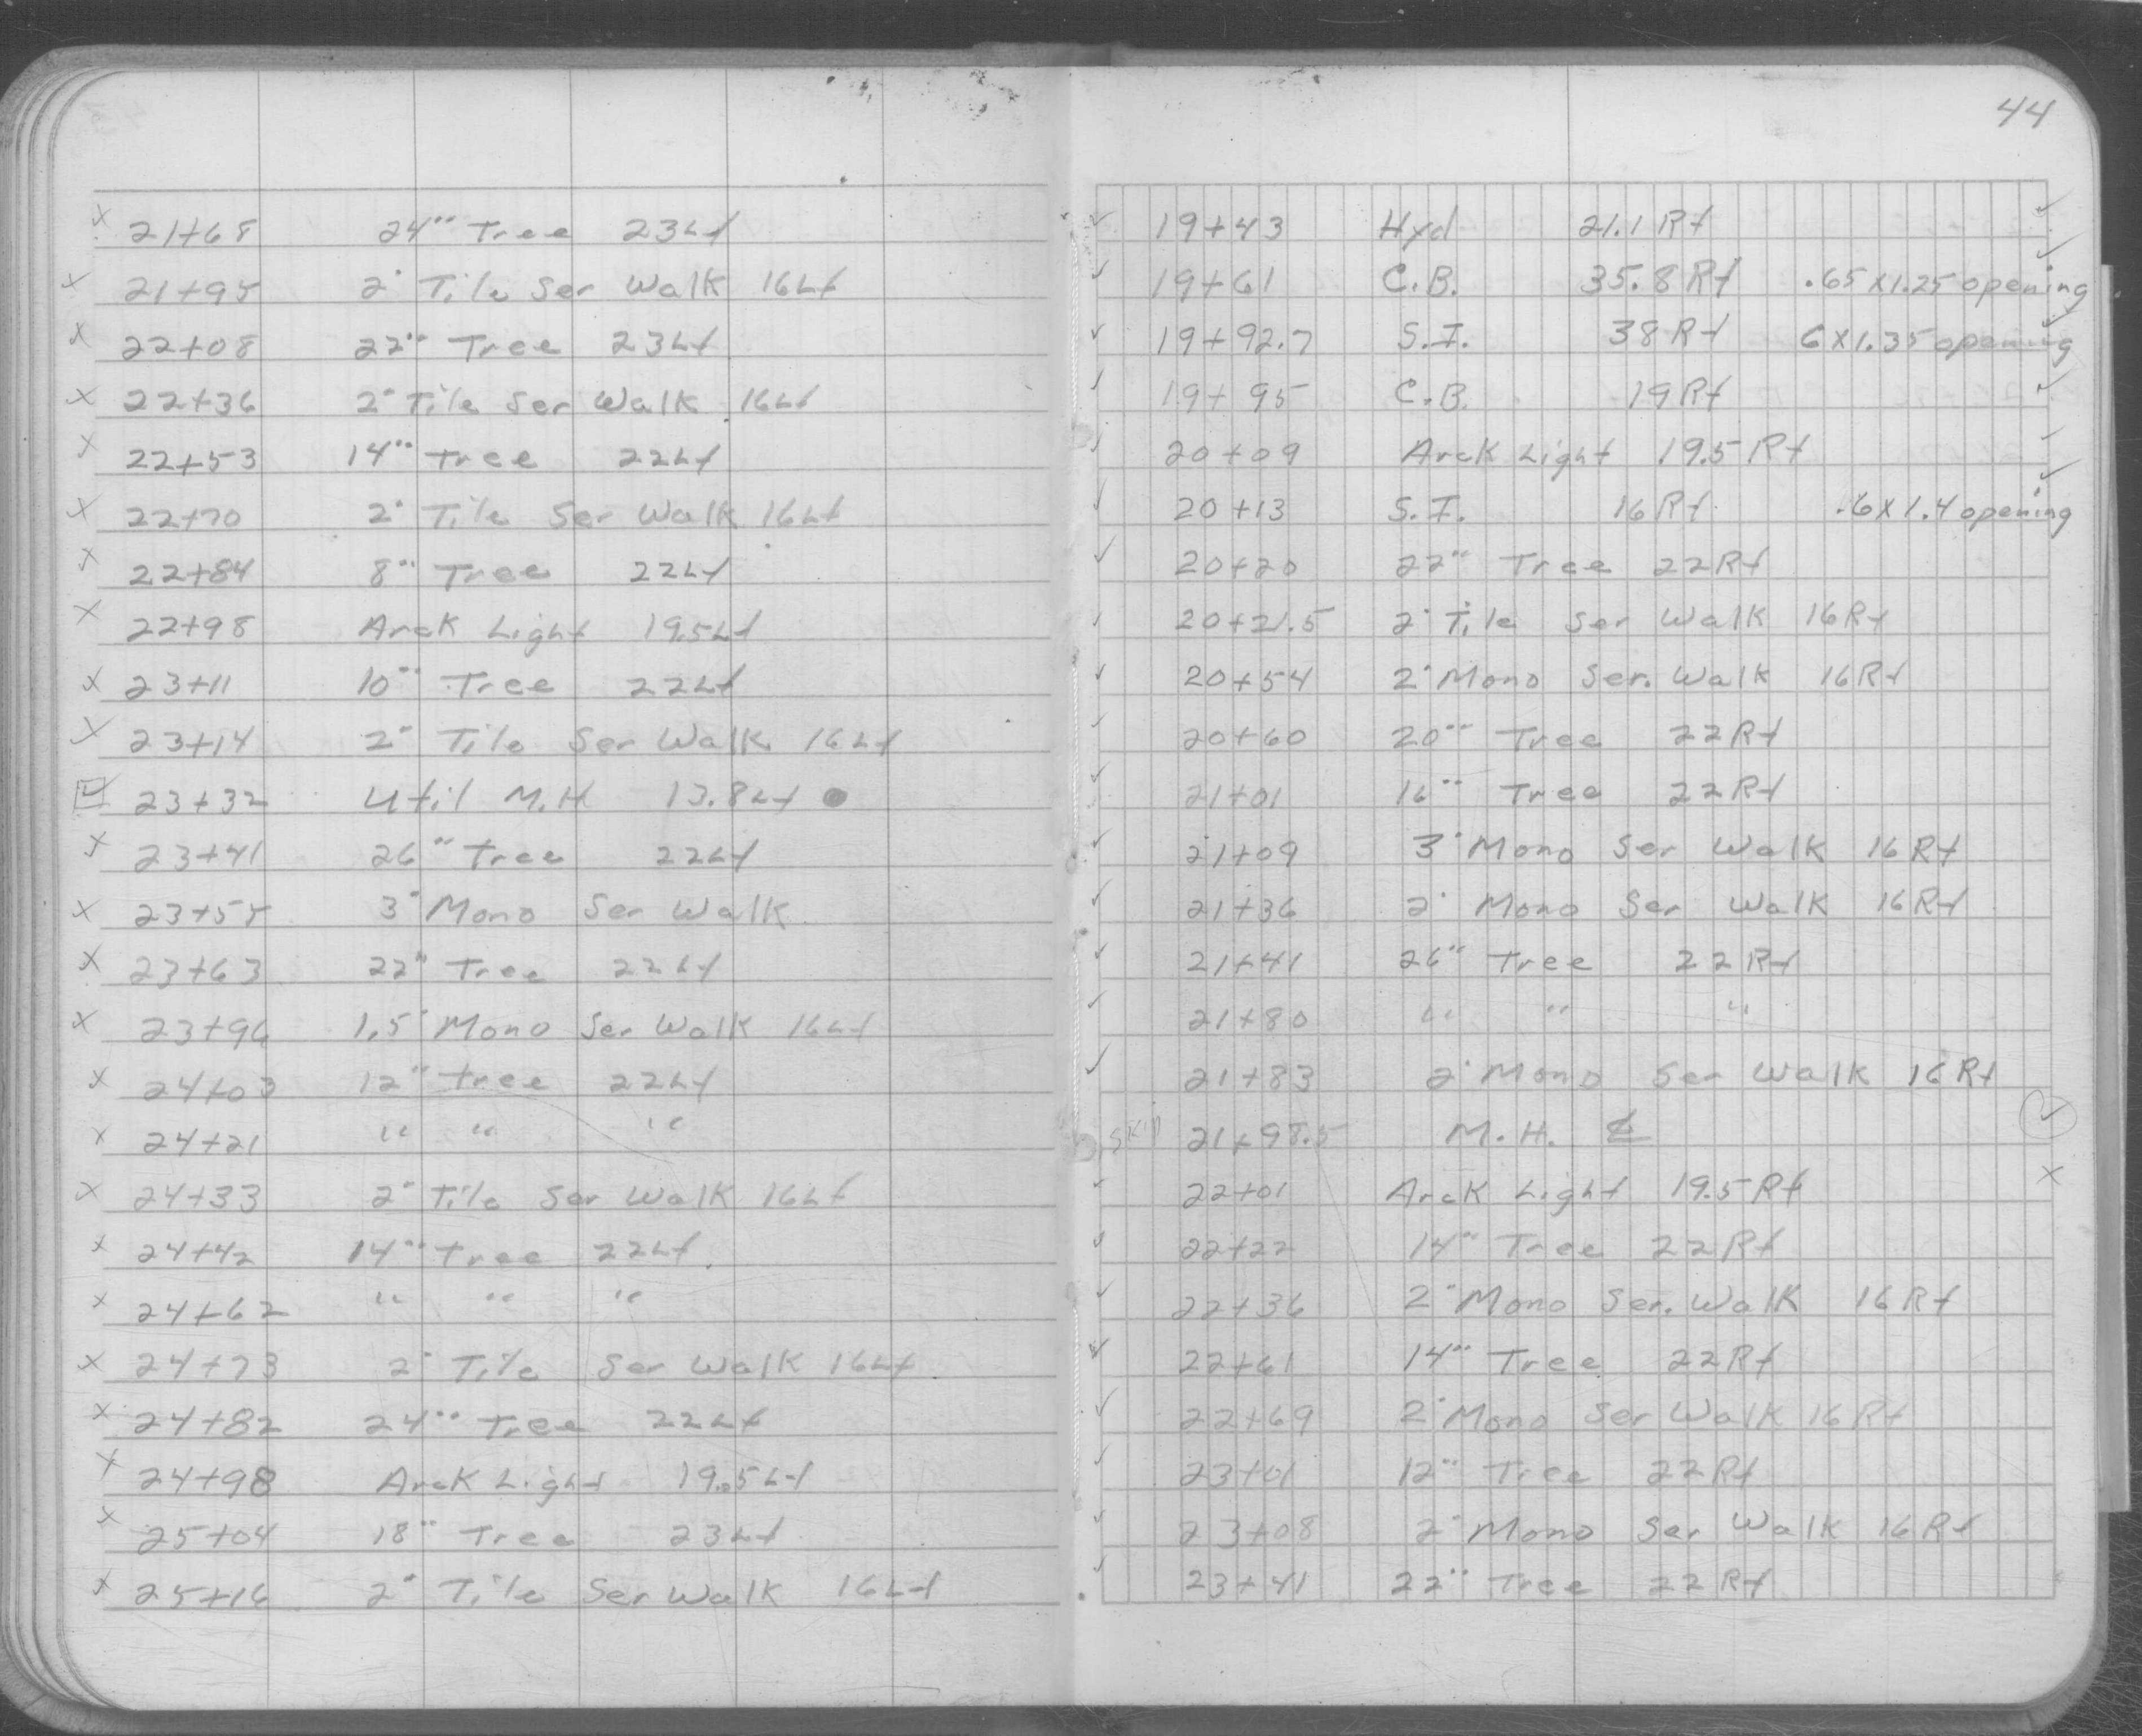 21+68 24" Tree 23Lt
21+95 2' Tile Ser Walk 16Lt
22+08 22" Tree 23Lt
22+36 2' Tile Ser Walk 16Lt
22+53 14" Tree 22Lt
22+70 2' Tile Ser Walk 16Lt
22+84 8" Tree 22Lt
22+98 Arck Light 19.5Lt
23+11 10" Tree 22Lt
23+14 2' Tile Ser Walk 16Lt
23+32 Util M.H 13.8Lt
23+41 26" Tree 22Lt
23+55 3' Mono Ser Walk
23+63 22" Tree 22Lt
23+96 1.5' Mono Ser Walk 16Lt
24+03 12" Tree 22Lt
24+21 " " "
24+33 2' Tile Ser Walk 16Lt
24+42 14" Tree 22Lt
24+62 " " "
24+73 2' Tile Ser Walk 16Lt
24+82 24" Tree 22Lt
24+98 Arck Light 19.5Lt
25+04 18" Tree 23Lt
25+16 2' Tile Ser Walk 16Lt
44
19+43 Hyd 21.1 Rt
19+61 C.B. 35.8 Rt .65x1.25 opening
19+92.7 S.I. 38 Rt 6x1.35 opening
19+95 C.B. 19 Rt
20+09 Arck Light 19.5 Rt
20+13 S.I. 16 Rt .6x1.4 opening
20+20 22" Tree 22 Rt
20+21.5 2' Tile Ser Walk 16 Rt
20+54 2' Mono Ser. Walk 16 Rt
20+60 20" Tree 22 Rt
21+01 16" Tree 22 Rt
21+09 3' Mono Ser Walk 16 Rt
21+36 2' Mono Ser Walk 16 Rt
21+41 26" Tree 22 Rt
21+80 " " "
21+83 2' Mono Ser Walk 16 Rt
skip 21+98.5 M.H. ℄
22+01 Arck Light 19.5 Rt
22+22 14" Tree 22 Rt
22+36 2' Mono Ser. Walk 16 Rt
22+61 14" Tree 22 Rt
22+69 2' Mono Ser Walk 16 Rt
23+01 12" Tree 22 Rt
23+08 2' Mono Ser Walk 16 Rt
23+41 22" Tree 22 Rt